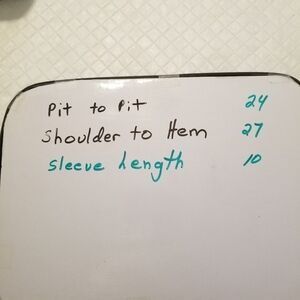 Pit to Pit 24
Shoulder to Hem 27
Sleeve Length 10